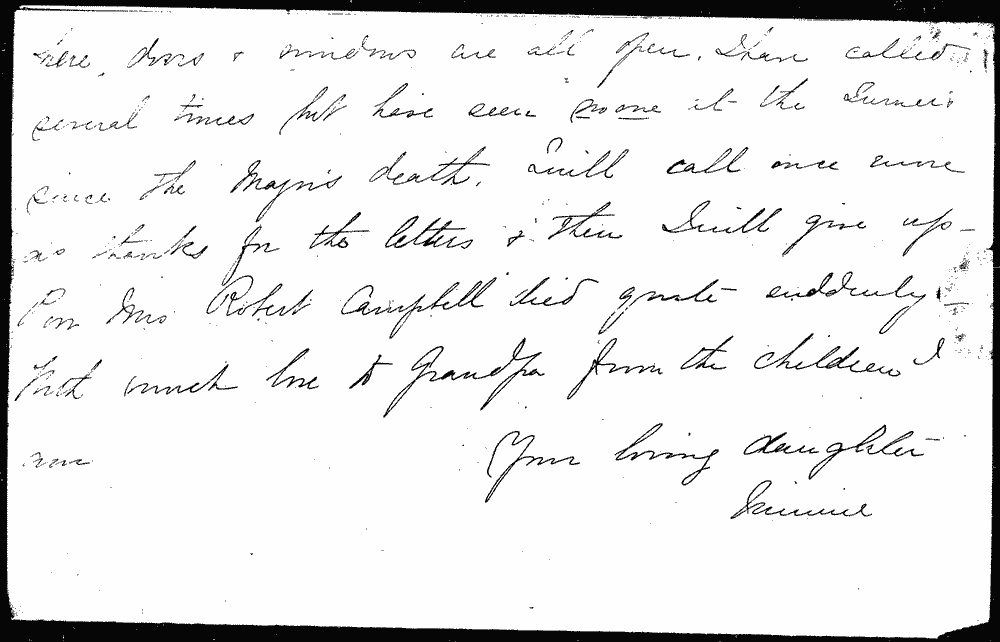 here, doors & windows are all open. I have called
several times but have seen no one at the Turner's
since the Major's death. I will call once more
as thanks for the letters & then I will give up –
Poor Mrs Robert Campbell died quite suddenly –
With much love to Grandpa from the children &
Your loving daughter
Minnie